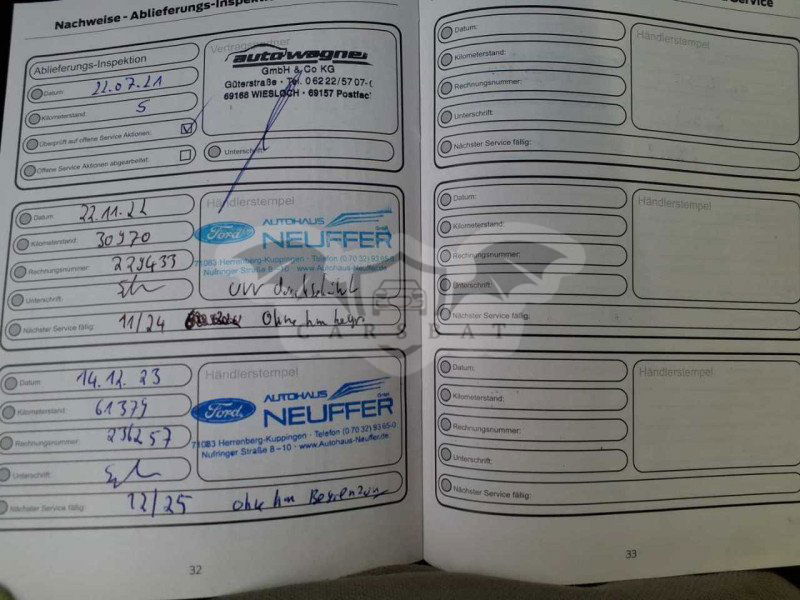 Nachweise - Ablieferungs-Inspekt
Service
Ablieferungs-Inspektion
Datum: 22.07.21
Kilometerstand: 5
Überprüft auf offene Service Aktionen:
Offene Service Aktionen abgearbeitet:
Vertragspartner
autowagner
GmbH & Co KG
Güterstraße · Tel. 0 62 22/57 07-(
69168 WIESLOCH · 69157 Postfac
Unterschrift
Datum: 22.11.22
Kilometerstand: 30970
Rechnungsnummer: 229433
Unterschrift:
Nächster Service fällig: 11/24 Ohne km
Händlerstempel
Ford
AUTOHAUS
NEUFFER GmbH
71083 Herrenberg-Kuppingen · Telefon (0 70 32) 9 36 5-0
Nufringer Straße 8–10 · www.Autohaus-Neuffer.de
Datum: 14.12.23
Kilometerstand: 61379
Rechnungsnummer: 236257
Unterschrift:
Nächster Service fällig: 12/25 ohne km
Händlerstempel
Ford
AUTOHAUS
NEUFFER GmbH
71083 Herrenberg-Kuppingen · Telefon (0 70 32) 9 36 5-0
Nufringer Straße 8–10 · www.Autohaus-Neuffer.de
32
Datum:
Kilometerstand:
Rechnungsnummer:
Unterschrift:
Nächster Service fällig:
Händlerstempel
Datum:
Kilometerstand:
Rechnungsnummer:
Unterschrift:
Nächster Service fällig:
Händlerstempel
Datum:
Kilometerstand:
Rechnungsnummer:
Unterschrift:
Nächster Service fällig:
Händlerstempel
33
CARSDAT